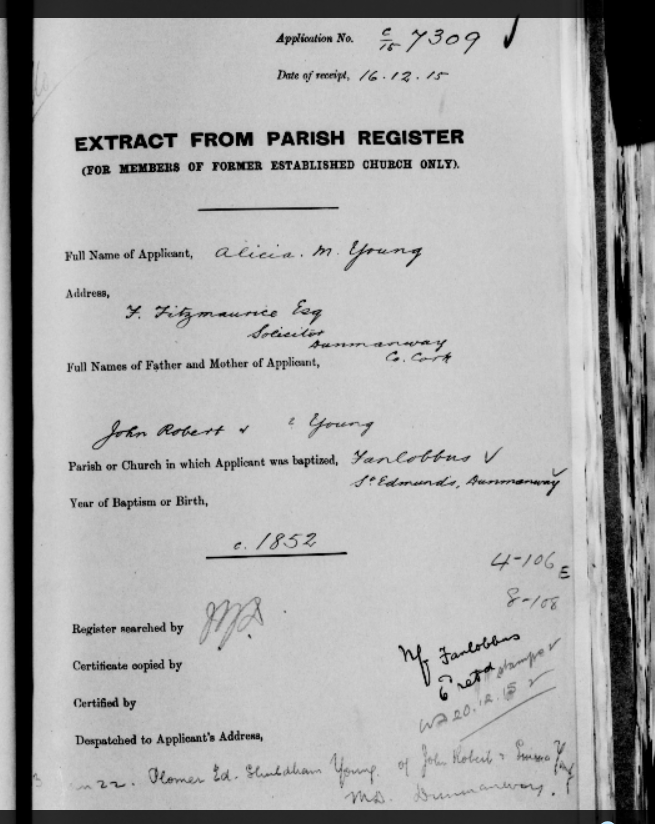 Application No. C/15 7309 ✓
Date of receipt, 16.12.15
EXTRACT FROM PARISH REGISTER
(FOR MEMBERS OF FORMER ESTABLISHED CHURCH ONLY).
Full Name of Applicant, Alicia. M. Young
Address,
F. Fitzmaurice Esq
Solicitor
Dunmanway
Co. Cork
Full Names of Father and Mother of Applicant,
John Robert & ? Young
Parish or Church in which Applicant was baptized, Fanlobbus ✓
St Edmunds, Dunmanway ✓
Year of Baptism or Birth,
c. 1852
4-106 E
8-108
Register searched by
Nf Fanlobbus
Certificate copied by
retd stamps ✓
Certified by
20.12.15 ✓
Despatched to Applicant's Address,
22. Plomer Ed. Shuldham Young of John Robert & Emma Young
MD. Dunmanway.